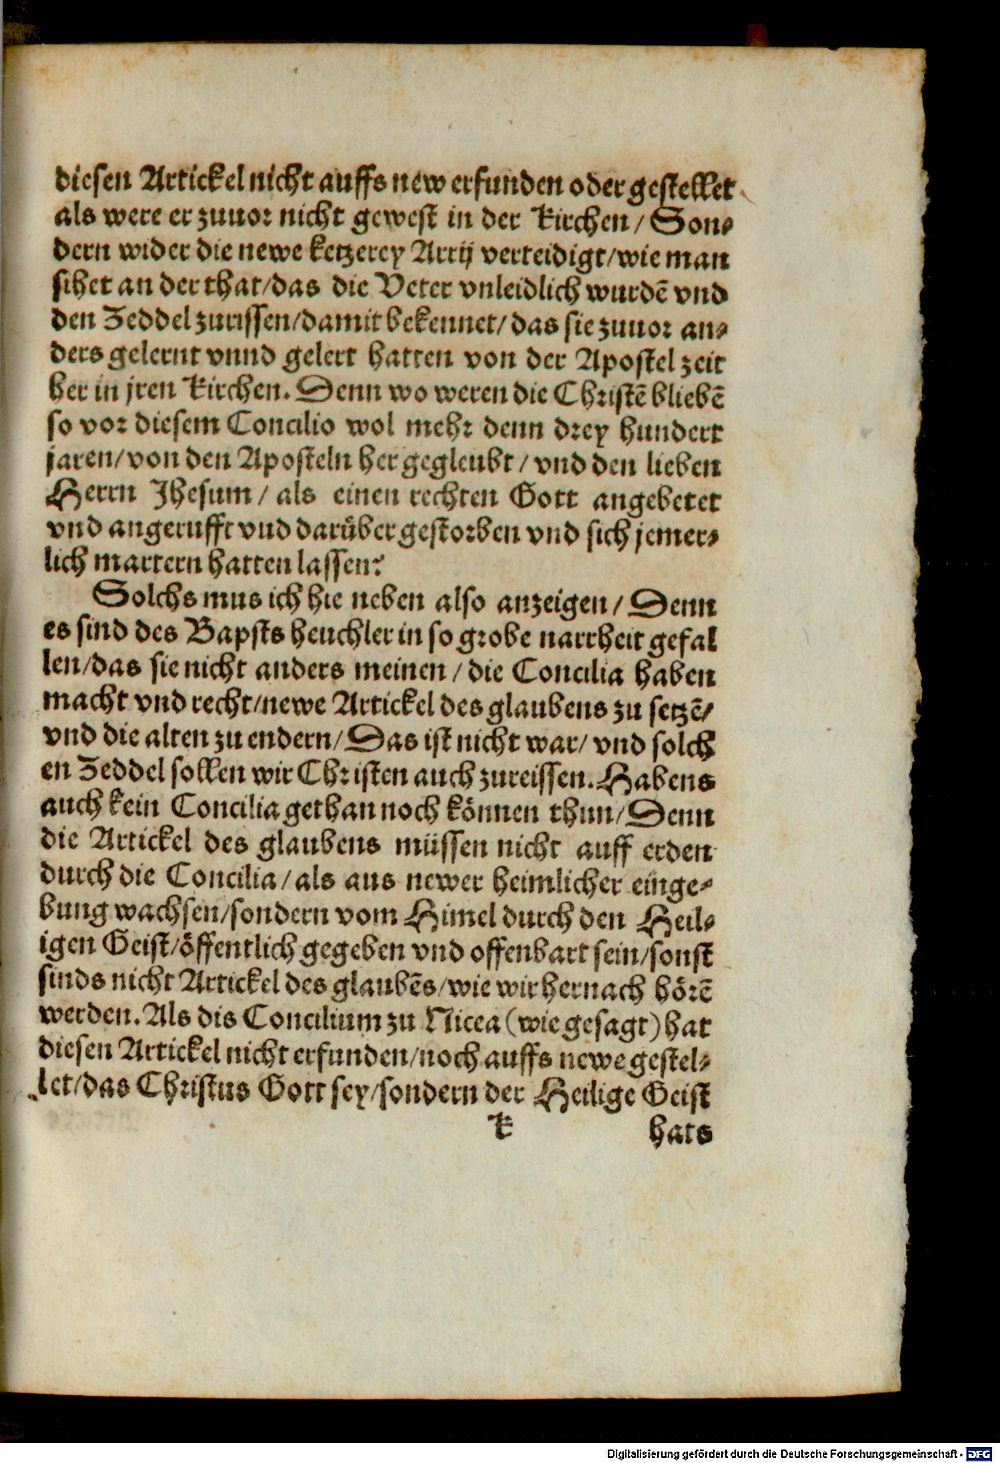 diesen Artickel nicht auffs new erfunden oder gestellet
als were er zuuor nicht gewest in der Kirchen/ Son-
dern wider die newe ketzerey Arrij verteidigt/wie man
sihet an der that/das die Veter vnleidlich wurdē vnd
den Zeddel zurissen/damit bekennet/das sie zuuor an-
ders gelernt vnnd gelert hatten von der Apostel zeit
her in jren Kirchen. Denn wo weren die Christē bliebē
so vor diesem Concilio wol mehr denn drey hundert
jaren/von den Aposteln her gegleubt/ vnd den lieben
Herrn Jhesum/ als einen rechten Gott angebetet
vnd angerufft vnd darüber gestorben vnd sich jemer-
lich martern hatten lassen?
Solchs mus ich hie neben also anzeigen/ Denn
es sind des Bapsts heuchler in so grobe narrheit gefal
len/das sie nicht anders meinen/ die Concilia haben
macht vnd recht/newe Artickel des glaubens zu setzē/
vnd die alten zu endern/ Das ist nicht war/ vnd solch
en Zeddel sollen wir Christen auch zureissen. Habens
auch kein Concilia gethan noch können thun/ Denn
die Artickel des glaubens müssen nicht auff erden
durch die Concilia/ als aus newer heimlicher einge-
bung wachsen/sondern vom Himel durch den Heil-
igen Geist/öffentlich gegeben vnd offenbart sein/sonst
sinds nicht Artickel des glaubēs/wie wir hernach hörē
werden. Als dis Concilium zu Nicea (wie gesagt) hat
diesen Artickel nicht erfunden/noch auffs newe gestel-
let/das Christus Gott sey/sondern der Heilige Geist
K hats
Digitalisierung gefördert durch die Deutsche Forschungsgemeinschaft - DFG